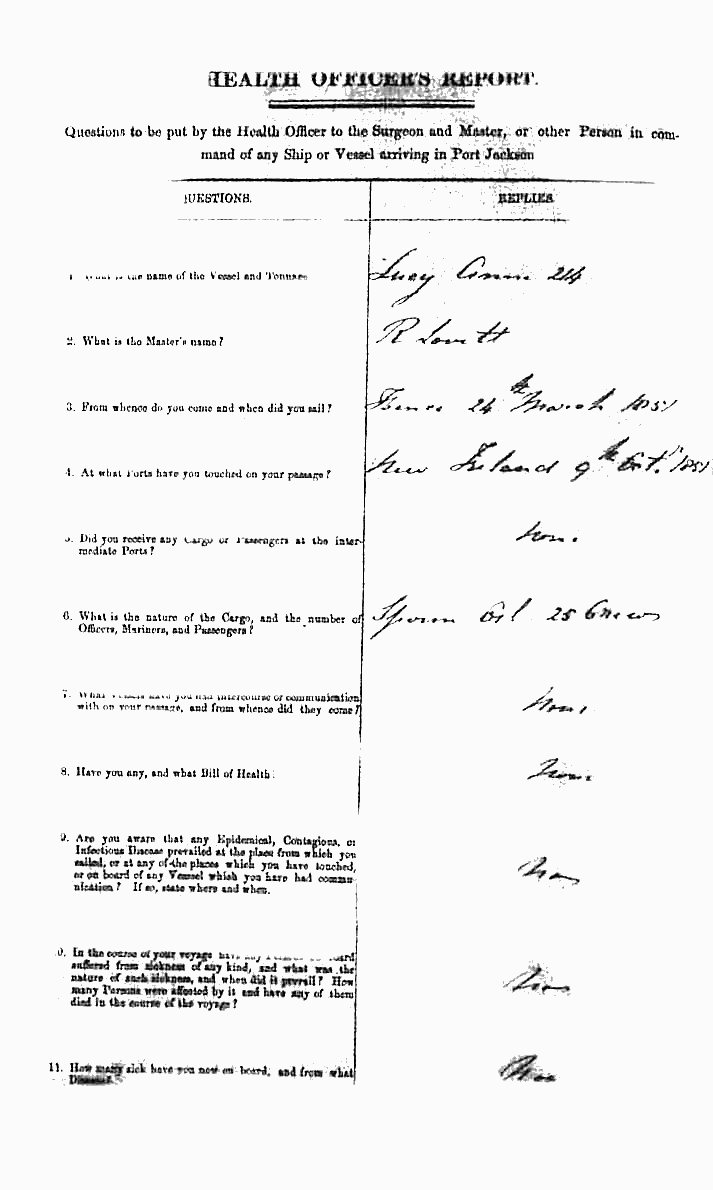 HEALTH OFFICER'S REPORT.
Questions to be put by the Health Officer to the Surgeon and Master, or other Person in com-
mand of any Ship or Vessel arriving in Port Jackson
QUESTIONS.
REPLIES
1. What is the name of the Vessel and Tonnage
Lucy Ann 214
2. What is the Master's name?
R Lovett
3. From whence do you come and when did you sail?
24th March 1851
4. At what Ports have you touched on your passage?
New Ireland 9th Oct. 1851
5. Did you receive any Cargo or Passengers at the inter-
mediate Ports?
None
6. What is the nature of the Cargo, and the number of
Officers, Mariners, and Passengers?
Sperm Oil 25 Crew
7. What Vessels have you had intercourse or communication
with on your passage, and from whence did they come?
None
8. Have you any, and what Bill of Health:
None
9. Are you aware that any Epidemical, Contagious, or
Infectious Disease prevailed at the place from which you
sailed, or at any of the places which you have touched,
or on board of any Vessel which you have had commu-
nication? If so, state where and when.
10. In the course of your voyage have any Persons on board
suffered from sickness of any kind, and what was the
nature of such sickness, and when did it prevail? How
many Persons were affected by it and have any of them
died in the course of the voyage?
11. How many sick have you now on board, and from what
Disease?